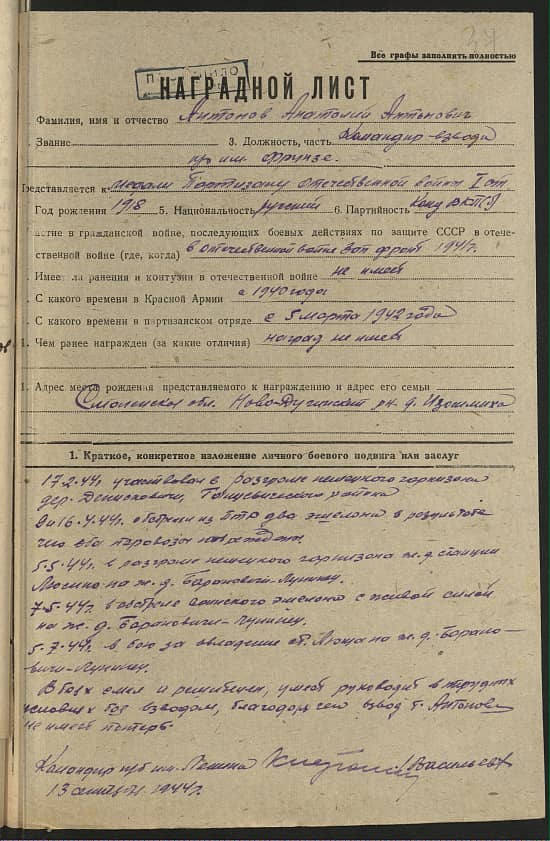 Все графы заполнять полностью
НАГРАДНОЙ ЛИСТ
Фамилия, имя и отчество Антонов Анатолий Антонович
Звание 3. Должность, часть Командир взвода
им. Фрунзе.
Представляется к медали Партизану отечественной войны I ст
Год рождения 1918 5. Национальность русский 6. Партийность Канд ВКП(б)
астие в гражданской войне, последующих боевых действиях по защите СССР в отече-
ственной войне (где, когда) в отечественной войне Зап фронт 1941г.
Имеет ли ранения и контузии в отечественной войне не имеет
С какого времени в Красной Армии с 1940 года
С какого времени в партизанском отряде с 5 марта 1942 года
1. Чем ранее награжден (за какие отличия) наград не имеет
1. Адрес места рождения представляемого к награждению и адрес его семьи
Смоленская обл. Ново-Дугинский рн. д.
1. Краткое, конкретное изложение личного боевого подвига или заслуг
17.2.44г. участвовал в разгроме немецкого гарнизона
дер. Денисковичи, района
16.4.44г. обстрелял из ПТР два эшелона в результате
чего оба паровоза
5.5.44г. в разгроме немецкого гарнизона ж.д. станции
Люсино на ж.д. Барановичи-Лунинец.
7.5.44г. в обстреле воинского эшелона с живой силой
на ж.д. Барановичи-Лунинец.
5.7.44г. в бою за овладение ст. Люща на ж.д. Барано-
вичи-Лунинец.
В боях смел и решителен, умеет руководить в трудных
условиях боя взводом, благодаря чего взвод т. Антонова
не имеет потерь.
Командир им. Ленина (Васильев)
13 1944г.